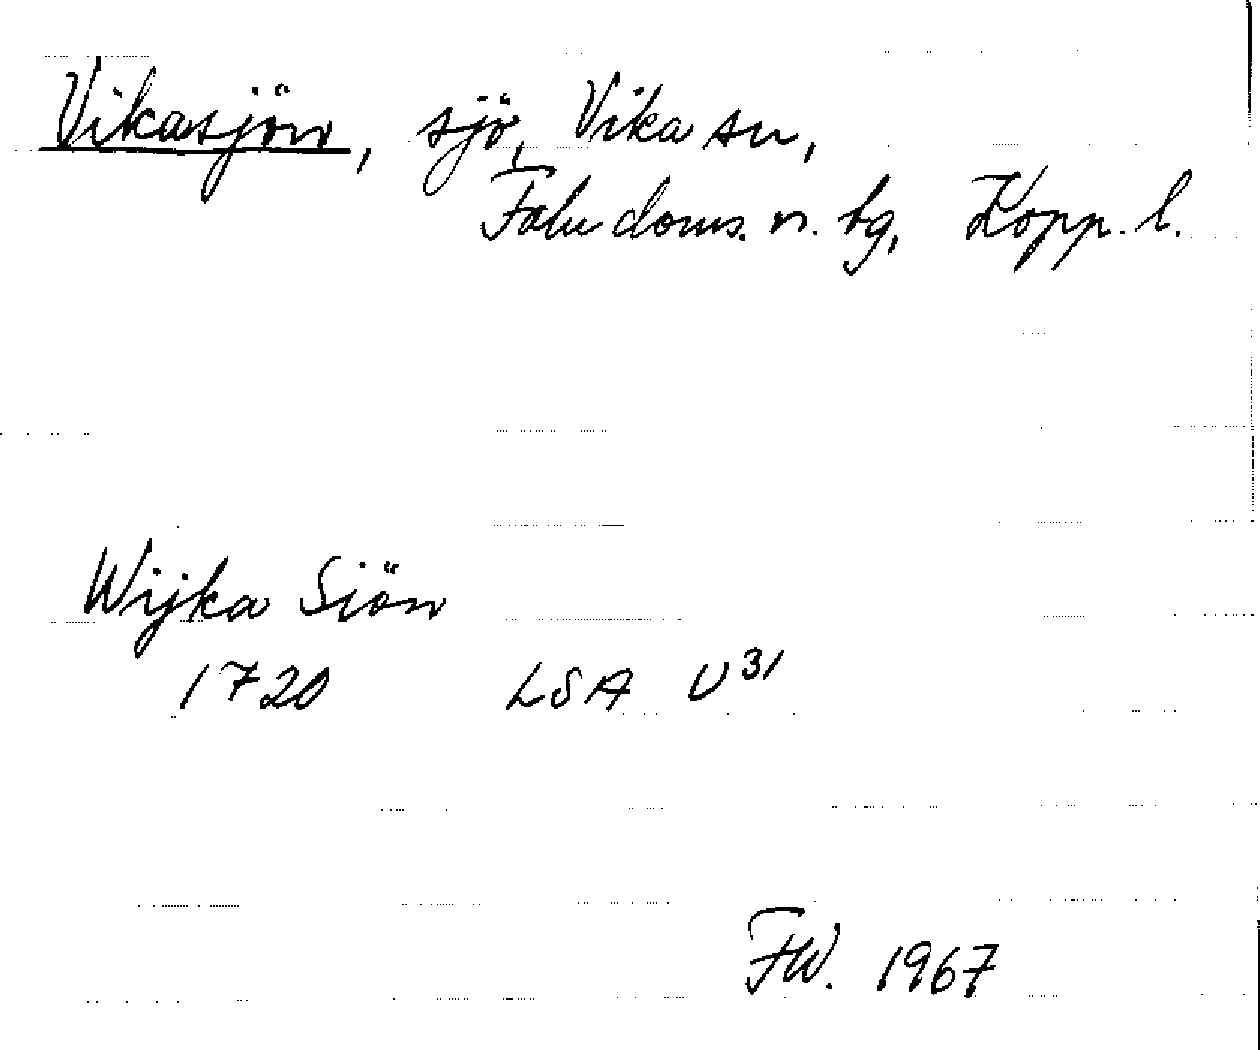 Vikasjön, sjö, Vika sn,
Falu doms. n. tg, Kopp. l.
Wijka Siön
1720 LSA U31
FW. 1967